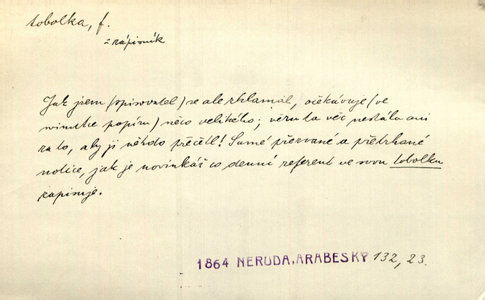 tobolka, f.
= zápisník
Jak jsem (opisovatel) se ale zklamal, očekávaje (ve
winutce papíru) něco velikého; věru ta věc nestála ani
za to, aby ji někdo přečetl! Samé přervané a přetrhané
notice, jak je novinkář co denní referent ve svou tobolku
zapisuje.
1864 NERUDA, ARABESKY 132, 23.